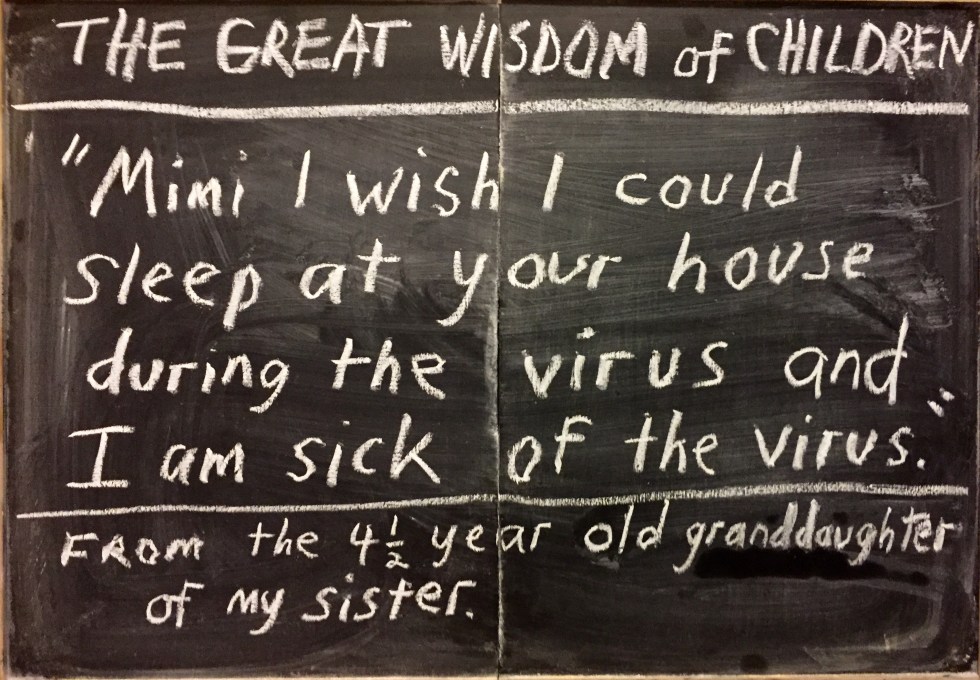 THE GREAT WISDOM of CHILDREN
"Mimi I wish I could
sleep at your house
during the virus and
I am sick of the virus."
FROM the 4½ year old granddaughter
of my sister.